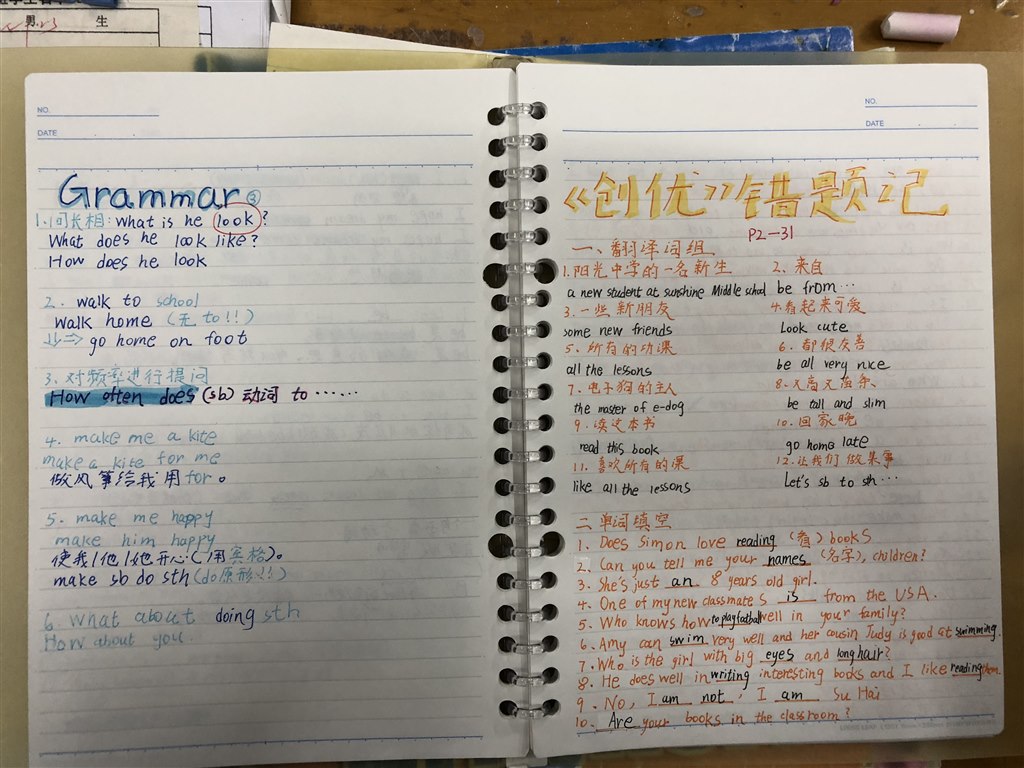 男
生
NO.
DATE
Grammar ③
1. 问长相: what is he look?
What does he look like?
How does he look
2. walk to school
walk home (无 to!!)
⇒ go home on foot
3. 对频率进行提问
How often does (sb) 动词 to ……
4. make me a kite
make a kite for me
做风筝给我用for。
5. make me happy
make him happy
使我/他/她开心(用宾格)。
make sb do sth (do原形!!)
6. What about doing sth
How about you.
NO.
DATE
《创优》错题记
P2-31
一、翻译词组
1. 阳光中学的一名新生 2. 来自
a new student at sunshine Middle school be from…
3. 一些新朋友 4. 看起来可爱
some new friends Look cute
5. 所有的功课 6. 都很友善
all the lessons be all very nice
7. 电子狗的主人 8. 又高又
the master of e-dog be tall and slim
9. 读这本书 10. 回家晚
read this book go home late
11. 喜欢所有的课 12. 让我们做某事
like all the lessons Let's sb to sth…
二 单词填空
1. Does Simon love reading (看) books
2. Can you tell me your names (名字), children?
3. She's just an 8 years old girl.
4. One of my new classmate s is from the USA.
5. Who knows how to play football well in your family?
6. Amy can swim very well and her cousin Judy is good at swimming.
7. Who is the girl with big eyes and long hair?
8. He does well in writing interesting books and I like reading them.
9. No, I am not, I am Su Hai
10. Are your books in the classroom?